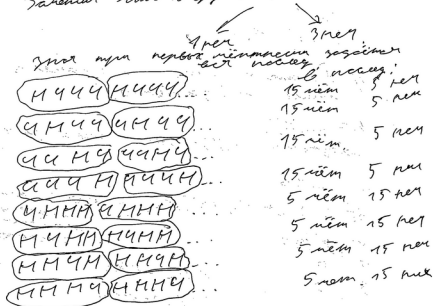 1 неч 3 неч
зная три первых чётности задаётся
вся послед. в послед:
НЧЧЧ НЧЧЧ ... 15 чёт 5 неч
ЧНЧЧ ЧНЧЧ ... 15 чёт 5 неч
ЧЧНЧ ЧЧНЧ ... 15 чёт. 5 неч
ЧЧЧН ЧЧЧН ... 15 чёт 5 неч
ЧННН ЧННН ... 5 чёт 15 неч
НЧНН НЧНН ... 5 чёт 15 неч
ННЧН ННЧН ... 5 чёт 15 неч
НННЧ НННЧ ... 5 чет. 15 неч